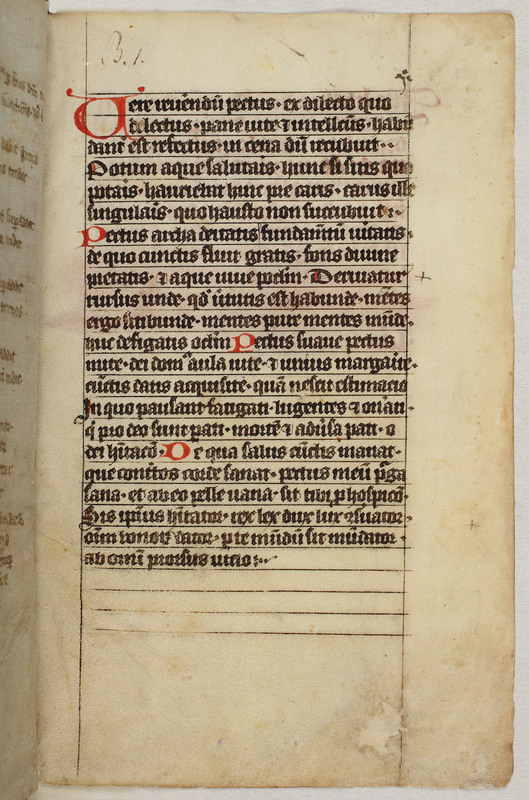 B. 1.
Uere reuerendū pectus · ex dilecto quo
dilectus · pane uite ⁊ intellcūs · habū
dant est refectus · in cena dūi recubuit ··
Potum aque salutaīs · hunc si sitis qui
potaīs · haurient hinc pie caris · carus ille
singulaīs · quo hausto non succubuit :·
Pectus archa deitatis fundamītū uitatis ·
de quo cunctis fluit gratis · fons diuine
pietatis · ⁊ aque uiue poclm̄ · Deriuatur
rursus unde · qd̄ uītutis est habunde · mētes
ergo sitibunde · mentes pure mentes mūde ·
huc defigatis oclm̄ Pectus suaue pectus
mite · dei dom⁹ aula uite · ⁊ unius margarite ·
cūctis dans acquisite · quā nescit estimatio
In quo pausant fatigati · lugentes ⁊ onati ·
q̄ pro deo sunt pati · morte ⁊ aduīsa pati · o
dei hitacō · De qua salus cūctis manat ·
que contritos corde sanat · pectus meū p̄ga
sana · et ab eo pelle uana · sit tibi p̄ hospicō ·
Sis ip̄ius hītator · rex lex dux lux ⁊suator ·
oīm bonoꝝ dator · p te mūdū sit mūdator ·
ab omī prorsus uicio :·